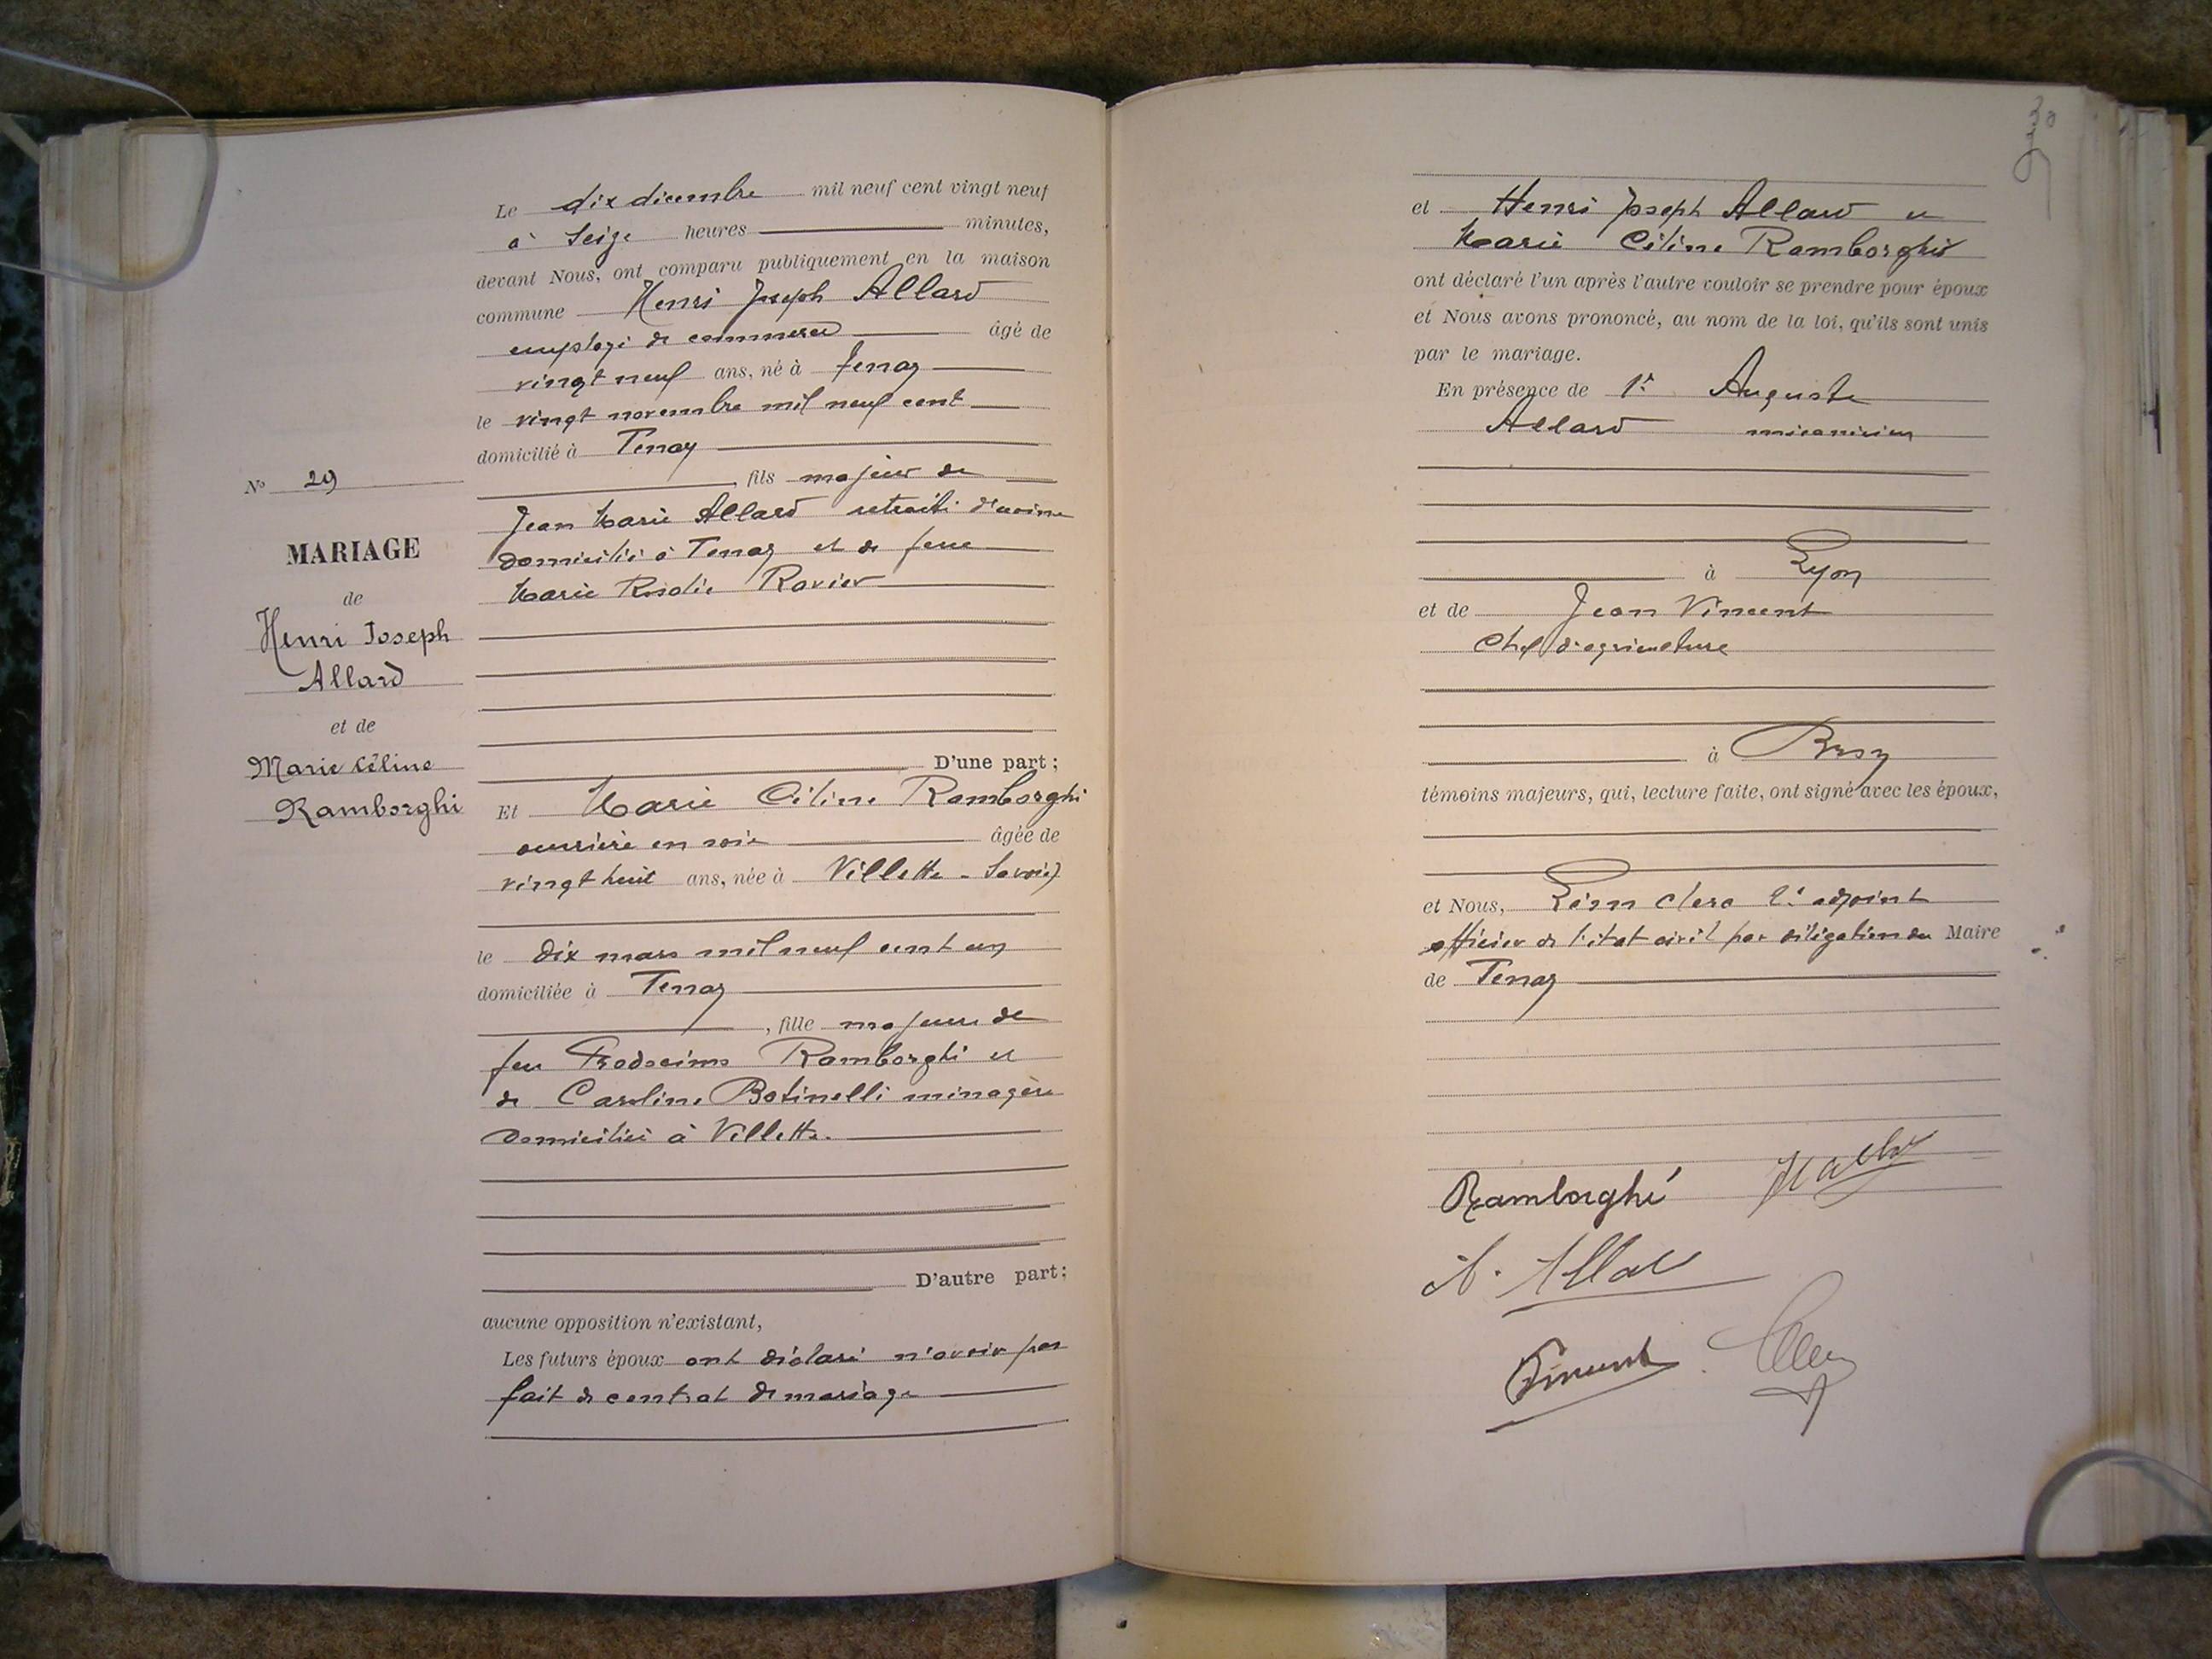 N° 29
MARIAGE
de
Henri Joseph
Allard
et de
Marie Céline
Ramborghi
Le dix décembre mil neuf cent vingt neuf
à Seize heures minutes,
devant Nous, ont comparu publiquement en la maison
commune Henri Joseph Allard
employé de commerce âgé de
vingt neuf ans, né à Tenay
le vingt novembre mil neuf cent
domicilié à Tenay
, fils majeur de
Jean Marie Allard retraité d'usine
domicilié à Tenay et de feue
Marie Rosalie Ravier
D'une part;
Et Marie Céline Ramborghi
ouvrière en soie âgée de
vingt huit ans, née à Villette - Savoie)
le dix mars mil neuf cent un
domiciliée à Tenay
, fille majeure de
feu Ramborghi et
de Caroline Botinelli ménagère
domiciliée à Villette.
D'autre part;
aucune opposition n'existant,
Les futurs époux ont déclaré n'avoir pas
fait de contrat de mariage
30
et Henri Joseph Allard et
Marie Céline Ramborghi
ont déclaré l'un après l'autre vouloir se prendre pour époux
et Nous avons prononcé, au nom de la loi, qu'ils sont unis
par le mariage.
En présence de 1° Auguste
Allard mécanicien
à Lyon
et de Jean Vincent
Chef d'agriculture
à Bron
témoins majeurs, qui, lecture faite, ont signé avec les époux,
et Nous, Léon Clerc adjoint
officier de l'état civil par délégation du Maire
de Tenay
Ramborghi
A. Allard
Vincent